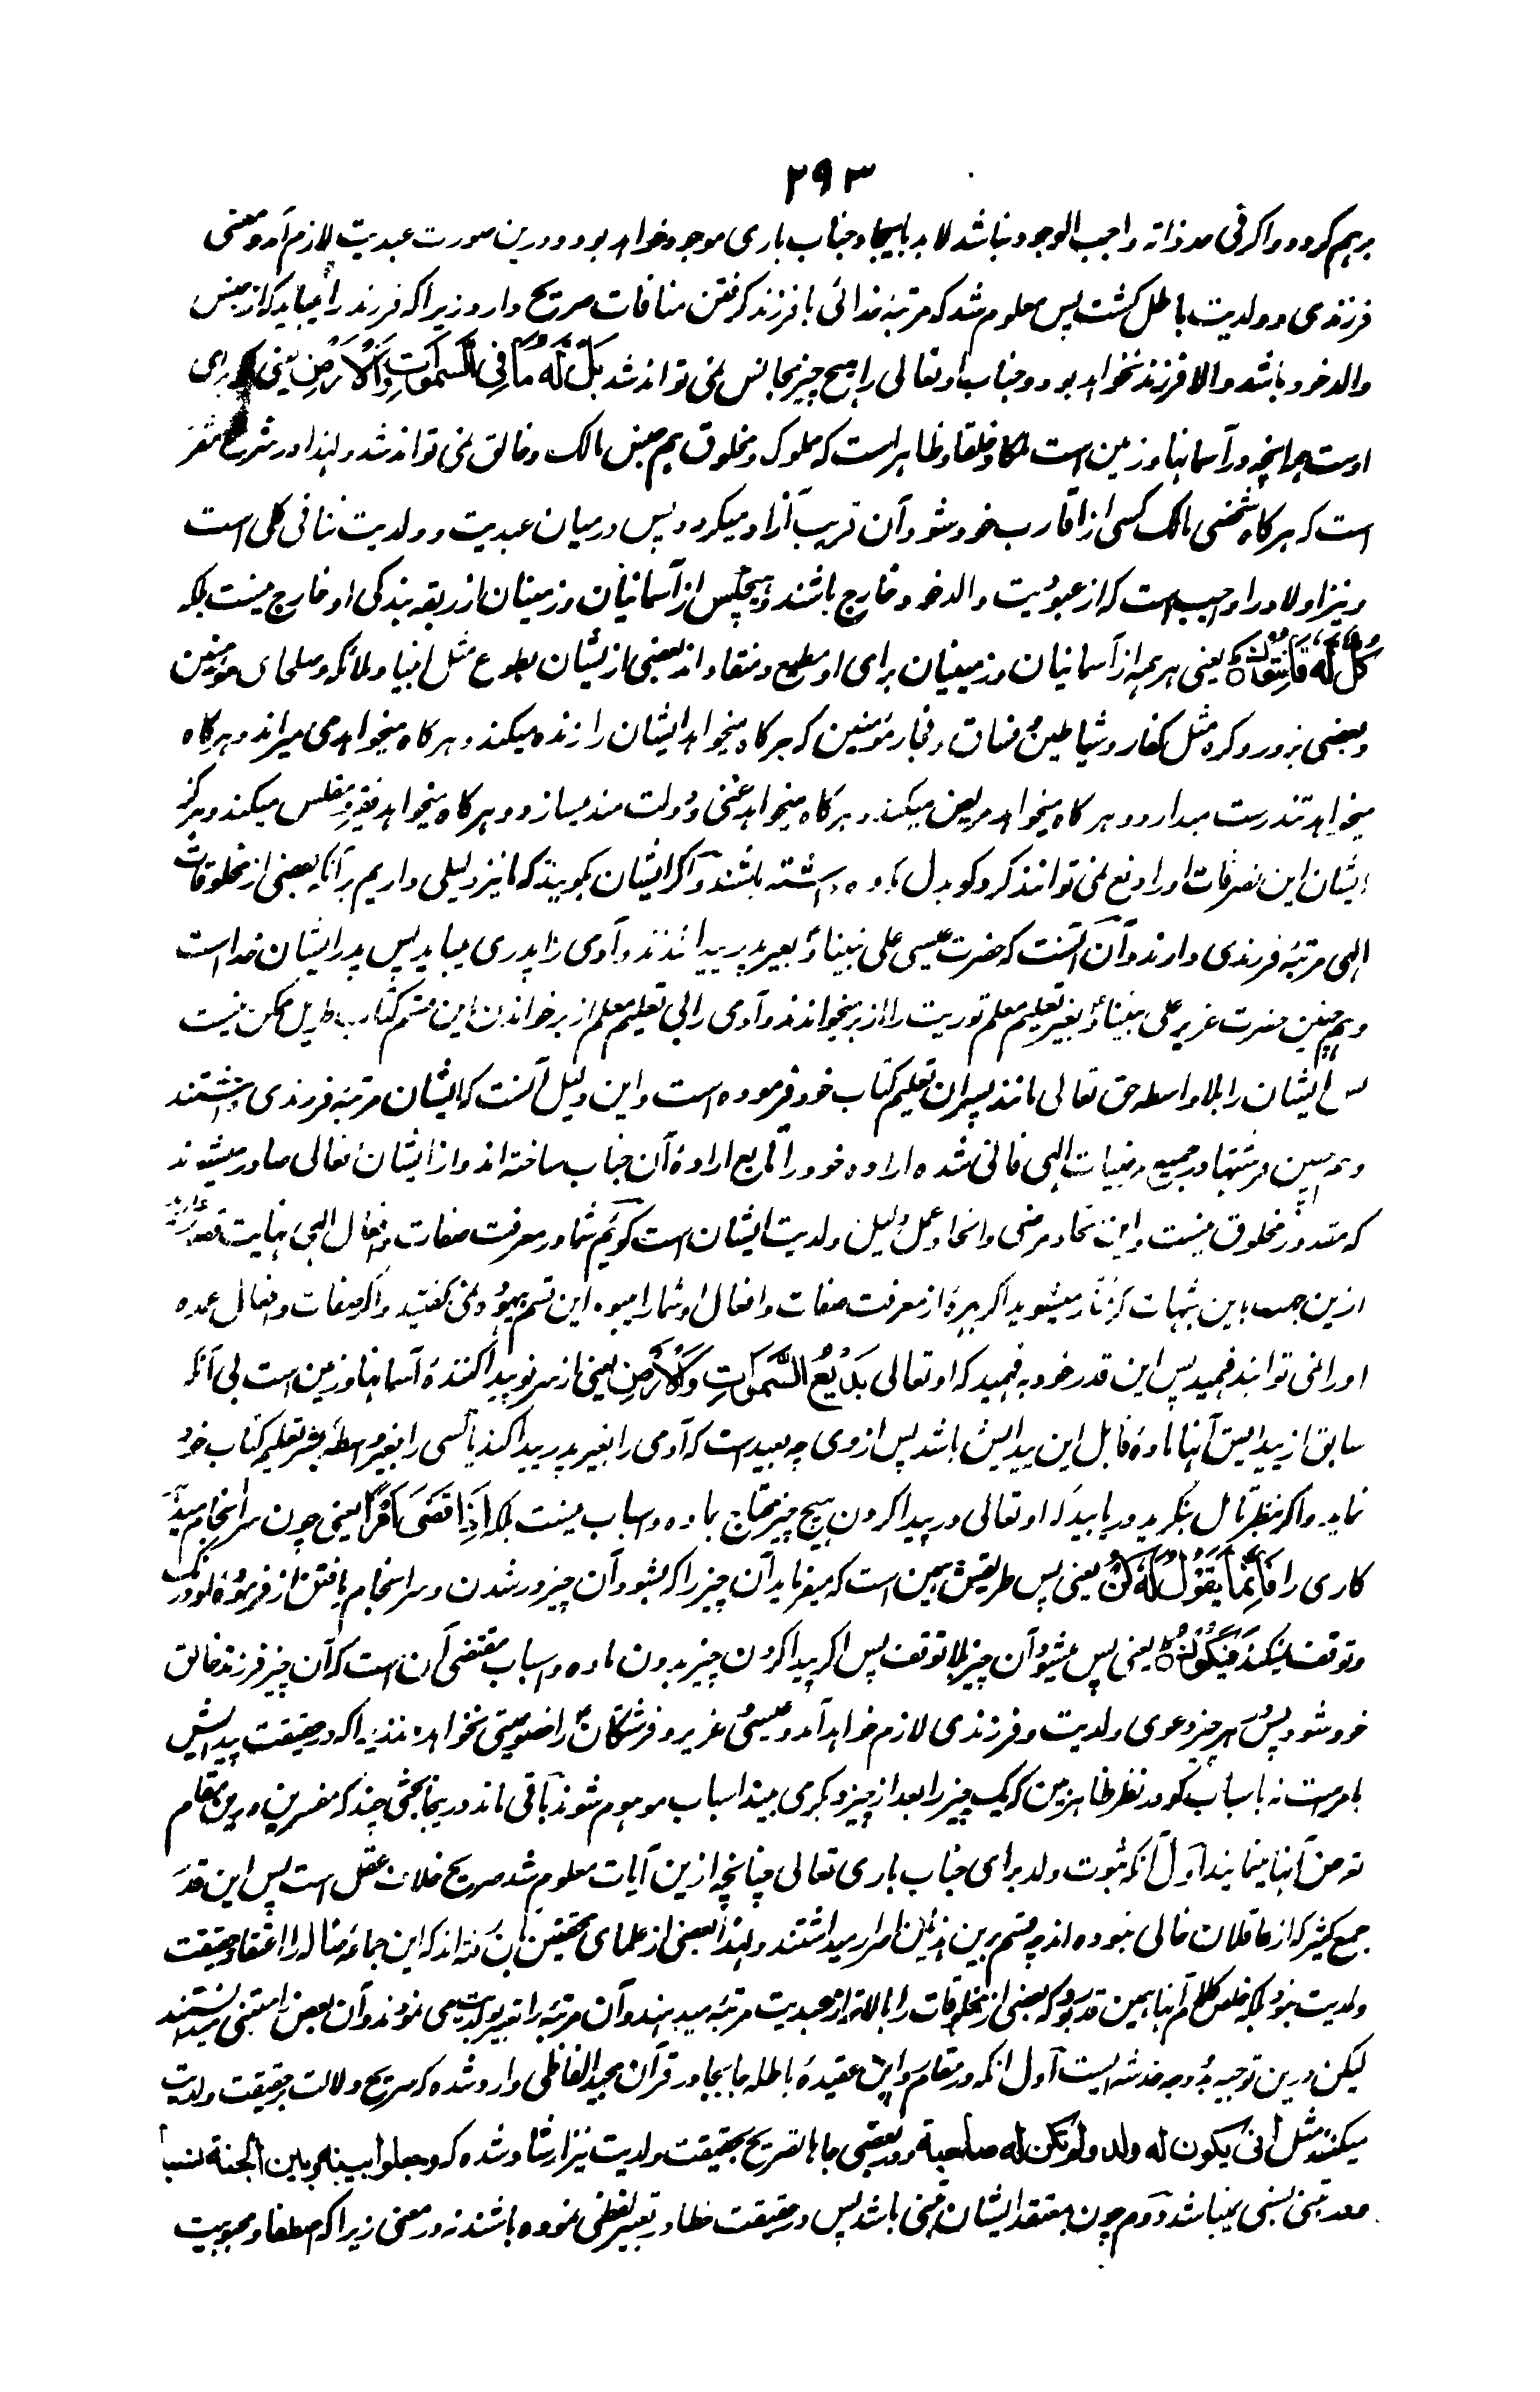 ۲۹۳
برہم کردد واکر فی حد ذاتہ واجب الوجود نباشد لابد بایجاد جناب باری موجود خواہد بود و درین صورت عبدیت لازم آمد و معنی
فرزندی و ولدیت باطل کشت پس معلوم شد کہ مرتبہ خدائی با فرزند کرفتن منافات صریح دارد زیرا کہ فرزند را میباید کہ از جنس
والد خود باشد والا فرزند نخواہد بود و جناب او تعالی را ہیچ چیز مجانس نمی تواند شد بَلْ لَهُ مَا فِي السَّمٰوَاتِ وَالْاَرْضِ یعنی برای
اوست ہر آنچہ در آسمانہا و زمین است ملکا و خلقا و ظاہر است کہ مملوک و مخلوق ہم جنس مالک و خالق نمی تواند شد و لہذا در شرع مقرر
است کہ ہرکاہ شخصی مالک کسی از اقارب خود شود آن قریب آزاد میکردد پس درمیان عبدیت و ولدیت تنافی کلی است
و نیز اولاد را واجب است کہ از عبودیت والد خود خارج باشند و ہیچکس از آسمانیان و زمینیان از ربقہ بندکی او خارج نیست بلکہ
كُلٌّ لَهُ قَانِتُوْنَ یعنی ہر ہمہ از آسمانیان و زمینیان برای او مطیع و منقاد اند بعضی ازیشان بطوع مثل انبیا و ملائکہ و صلحای مومنین
و بعضی بزور و کرہ مثل کفار و شیاطین و فساق و فجار مومنین کہ ہرکاہ میخواہد ایشان را زندہ میکند و ہرکاہ میخواہد می میراند و ہرکاہ
میخواہد تندرست میدارد و ہرکاہ میخواہد مریض میکند و ہرکاہ میخواہد غنی و دولت مند میسازد و ہرکاہ میخواہد فقیر و مفلس میکند و ہرکز
ایشان این تصرفات او را دفع نمی توانند کرد کو بدل ناخوش داشتہ باشند و اکر ایشان بکویند کہ ما نیز دلیلی داریم برآنکہ بعضی از مخلوقات
الہی مرتبہ فرزندی دارند و آن آنست کہ حضرت عیسی علی نبینا و بغیر پدر پیدا شدند و آدمی را پدری میباید پس پدر ایشان خداست
و ہمچنین حضرت عزیر علی نبینا بغیر تعلیم معلم توریت را از بر میخواندند و آدمی را بی تعلیم معلم از بر خواندن این قسم کتاب طویل ممکن نیست
ایشان را بلا واسطہ حق تعالی مانند پسران تعلیم کتاب خود فرمودہ است و این دلیل آنست کہ ایشان مرتبہ فرزندی داشتند
و ہمچنین فرشتہا در جمیع مرضیات الہی فانی شدہ ارادہ خود را تابع ارادہ آن جناب ساختہ اند و از ایشان افعالی صادر میشوند
کہ مقدور مخلوق نیست و این اتحاد مرضی و اتحاد عمل دلیل ولدیت ایشان است کوئیم شما در معرفت صفات و افعال الہی نہایت قصور دارید
ازین جہت باین شبہات کرفتار میشوید اکر بہرہ از معرفت صفات و افعال او شما را میبود این قسم بیہودہ نمی کفتید و اکر صفات و افعال عمدہ
او را نمی توانید فہمید پس این قدر خود بہ فہمید کہ او تعالی بَدِيْعُ السَّمٰوَاتِ وَالْاَرْضِ یعنی از سر نو پیدا کنندہ آسمانہا و زمین است بی آنکہ
سابق از پیدایش آنہا مادہ قابل این پیدایش باشد پس از وی چہ بعید است کہ آدمی را بغیر پدر پیدا کند یا کسی را بغیر واسطہ بشر تعلیم کتاب خود
نماید و اکر بنظر تامل بنکرید دریابید کہ او تعالی در پیدا کردن ہیچ چیز محتاج بمادہ و اسباب نیست بلکہ اِذَا قَضٰى اَمْرًا یعنی چون سرانجام میدہد
کاری را فَاِنَّمَا يَقُوْلُ لَهُ كُنْ یعنی پس طریقش ہمین است کہ میفرماید آن چیز را کہ بشو و آن چیز در شدن و سرانجام یافتن از فرمودہ او درنک
و توقف نمیکند فَيَكُوْنُ یعنی پس میشود آن چیز بلا توقف پس اکر پیدا کردن چیز بدون مادہ و اسباب مقتضی آن است کہ آن چیز فرزند خالق
خود شود پس ہر چیز دعوی ولدیت و فرزندی لازم خواہد آمد و عیسی و عزیر و فرشتکان را خصوصیتی نخواہد ماند زیرا کہ در حقیقت پیدایش
بامر است نہ باسباب کو در نظر ظاہر بین کہ یک چیز را بعد از چیز دیکری میبیند اسباب موہوم شوند باقی ماند درینجا بحثی چند کہ مفسرین درین مقام
تعرض آنہا مینمایند اول آنکہ ثبوت ولد برای جناب باری تعالی چنانچہ ازین آیات معلوم شد صریح خلاف عقل است پس این قدر
جمع کثیر کہ از عاقلان خالی نبودہ اند چہ قسم برین ہذیان اصرار میداشتند و لہذا بعضی از علمای محققین بآن رفتہ اند کہ این جماعہ ضالہ را اعتقاد حقیقت
ولدیت نبود بلکہ ملخص کلام آنہا ہمین قدر بود کہ بعضی از مخلوقات را بالاتر از عبدیت مرتبہ میدہند و آن مرتبہ را تعبیر بولدیت می نمودند و آن بعض را متبنی میدانستند
لیکن درین توجیہ بدو وجہ خدشہ ایست اول آنکہ در مقام رد این عقیدہ باطلہ جا بجا در قرآن مجید الفاظی وارد شدہ کہ صریح دلالت بر حقیقت ولدیت
میکنند مثل انى يكون له ولد ولم تكن له صاحبة و در بعضی جاہا تصریح بحقیقت ولدیت نیز ارشاد شدہ کہ وجعلوا بينه وبين الجنة نسبا
و در تبنی نسبی نمیباشد دوم چون معتقد ایشان تبنی باشد پس در حقیقت خطا در تعبیر لفظی نمودہ باشند نہ در معنی زیرا کہ اصطفا و محبوبیت